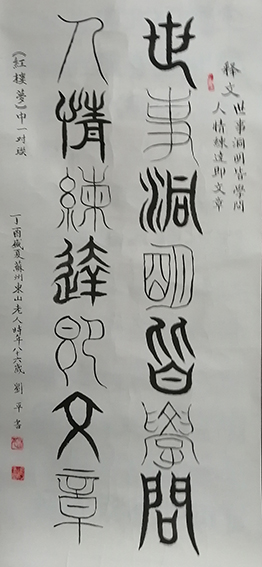 释文 世事洞明皆學問
人情練達即文章
世事洞明皆學問
人情練達即文章
《紅樓夢》中一对联
丁酉歲夏蘇州東山老人時年八十六歲 劉草書